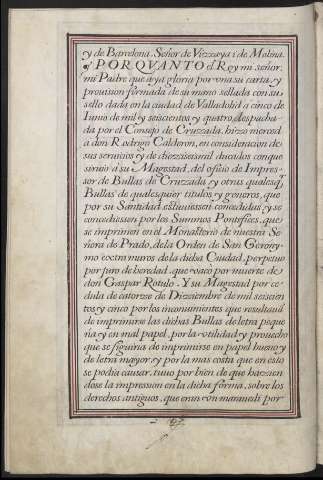 y de Barcelona, Señor de Vizcaya i de Molina
PORQVANTO el Rey mi señor,
mi Padre que aya gloria por vna su carta, y
prouision firmada de su mano sellada con su
sello dada en la ciudad de Valladolid a cinco de
Iunio de mil y seiscientos y quatro, despacha
da por el Consejo de Cruzada, hizo merced
a don Rodrigo Calderon, en consideracion de
sus seruicios y de diezisseis mil ducados con que
siruio a su Magestad, del oficio de Impres
sor de Bullas de Cruzada y otras qualesq
Bullas de qualesquier titulos y generos, que
por su Santidad estuuiessen concedidas y se
concediessen por los Summos Pontifices, que
se imprimen en el Monasterio de nuestra Se
ñora de Prado, de la Orden de San Gerony
mo extramuros de la dicha Ciudad, perpetuo
por juro de heredad, que vaco por muerte de
don Gaspar Rotulo. Y su Magestad por ce
dula de catorze de Dizziembre de mil seiscien
tos y cinco por los inconuinientes que resultauã
de imprimirse las dichas Bullas de letra peque
ña y en mal papel, por la vtilidad y prouecho
que se siguiria de imprimirse en papel bueno y
de letra mayor, y por la mas costa que en esto
se podia causar, tuuo por bien de que hazien
dose la impression en la dicha forma, sobre los
derechos antiguos, que eran vn marauedi por